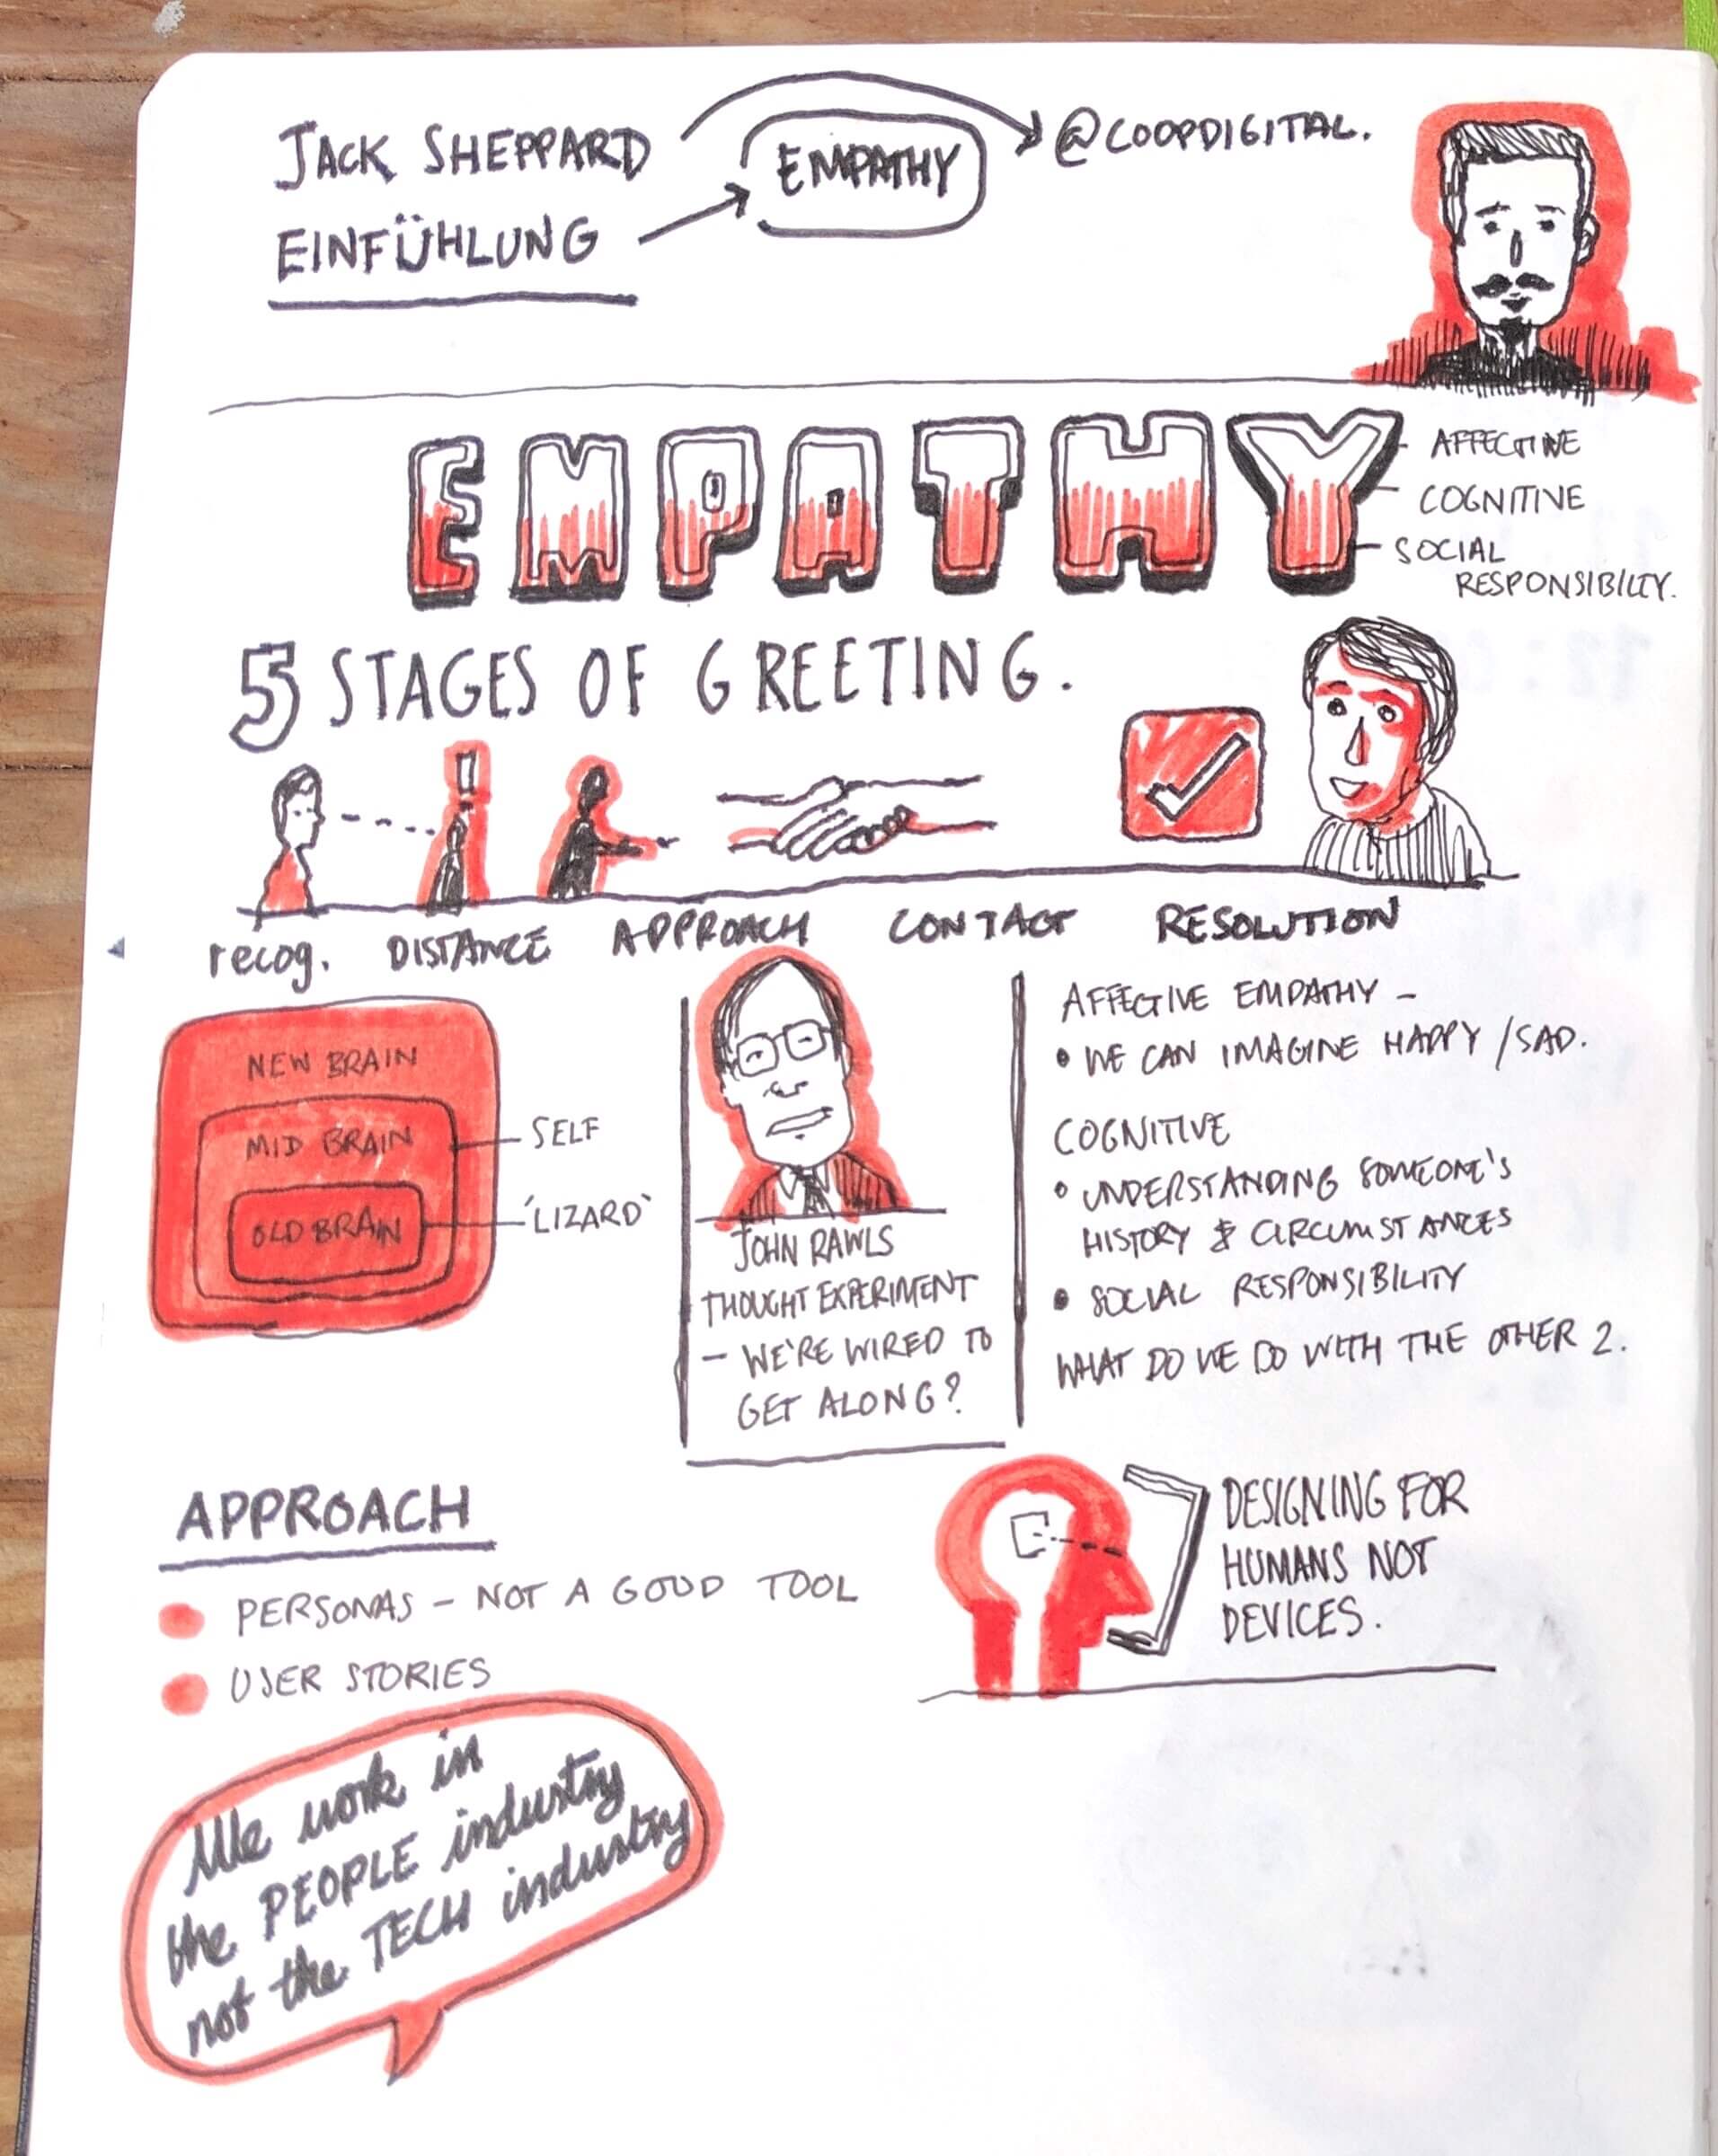 JACK SHEPPARD
EMPATHY
@COOPDIGITAL.
EINFÜHLUNG
EMPATHY
AFFECTIVE
COGNITIVE
SOCIAL
RESPONSIBILTY.
5 STAGES OF GREETING.
recog.
DISTANCE
APPROACH
CONTACT
RESOLUTION
NEW BRAIN
MID BRAIN
OLD BRAIN
SELF
'LIZARD'
JOHN RAWLS
THOUGHT EXPERIMENT
- WE'RE WIRED TO
GET ALONG?
AFFECTIVE EMPATHY -
• WE CAN IMAGINE HAPPY / SAD.
COGNITIVE
• UNDERSTANDING SOMEONE'S
HISTORY & CIRCUMSTANCES
• SOCIAL RESPONSIBILITY
WHAT DO WE DO WITH THE OTHER 2.
APPROACH
PERSONAS - NOT A GOOD TOOL
USER STORIES
DESIGNING FOR
HUMANS NOT
DEVICES.
We work in
the PEOPLE industry
not the TECH industry